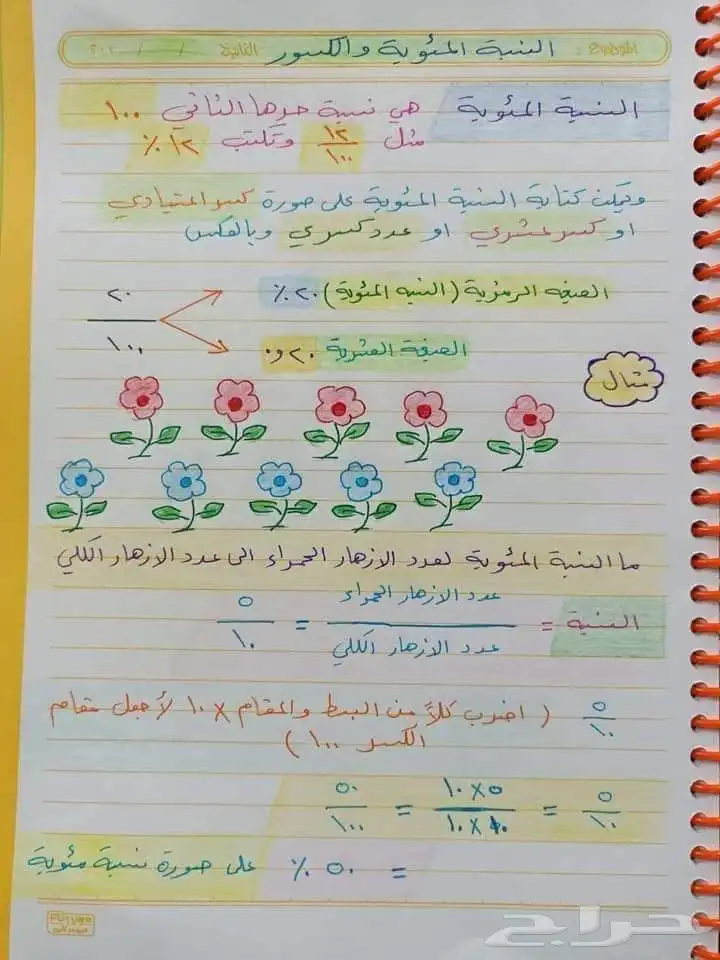 الموضوع : النسبة المئوية والكسور التاريخ / / ٢٠
النسبة المئوية هي نسبة حدها الثاني ١٠٠
مثل ١٢/١٠٠ وتكتب ١٢٪
ويمكن كتابة النسبة المئوية على صورة كسر اعتيادي
او كسر عشري او عدد كسري وبالعكس
٢٠/١٠٠
الصيغه الرمزية (النسبه المئوية) ٢٠٪
الصيغة العشرية ٢٠و٠
مثال
ما النسبة المئوية لعدد الازهار الحمراء الى عدد الازهار الكلي
النسبة = عدد الازهار الحمراء / عدد الازهار الكلي = ٥/١٠
٥/١٠ ( اضرب كلاً من البسط والمقام × ١٠ لأجعل مقام
الكسر ١٠٠ )
٥/١٠ = ١٠×٥ / ١٠×١٠ = ٥٠/١٠٠
= ٥٠٪ على صورة نسبة مئوية
حراج